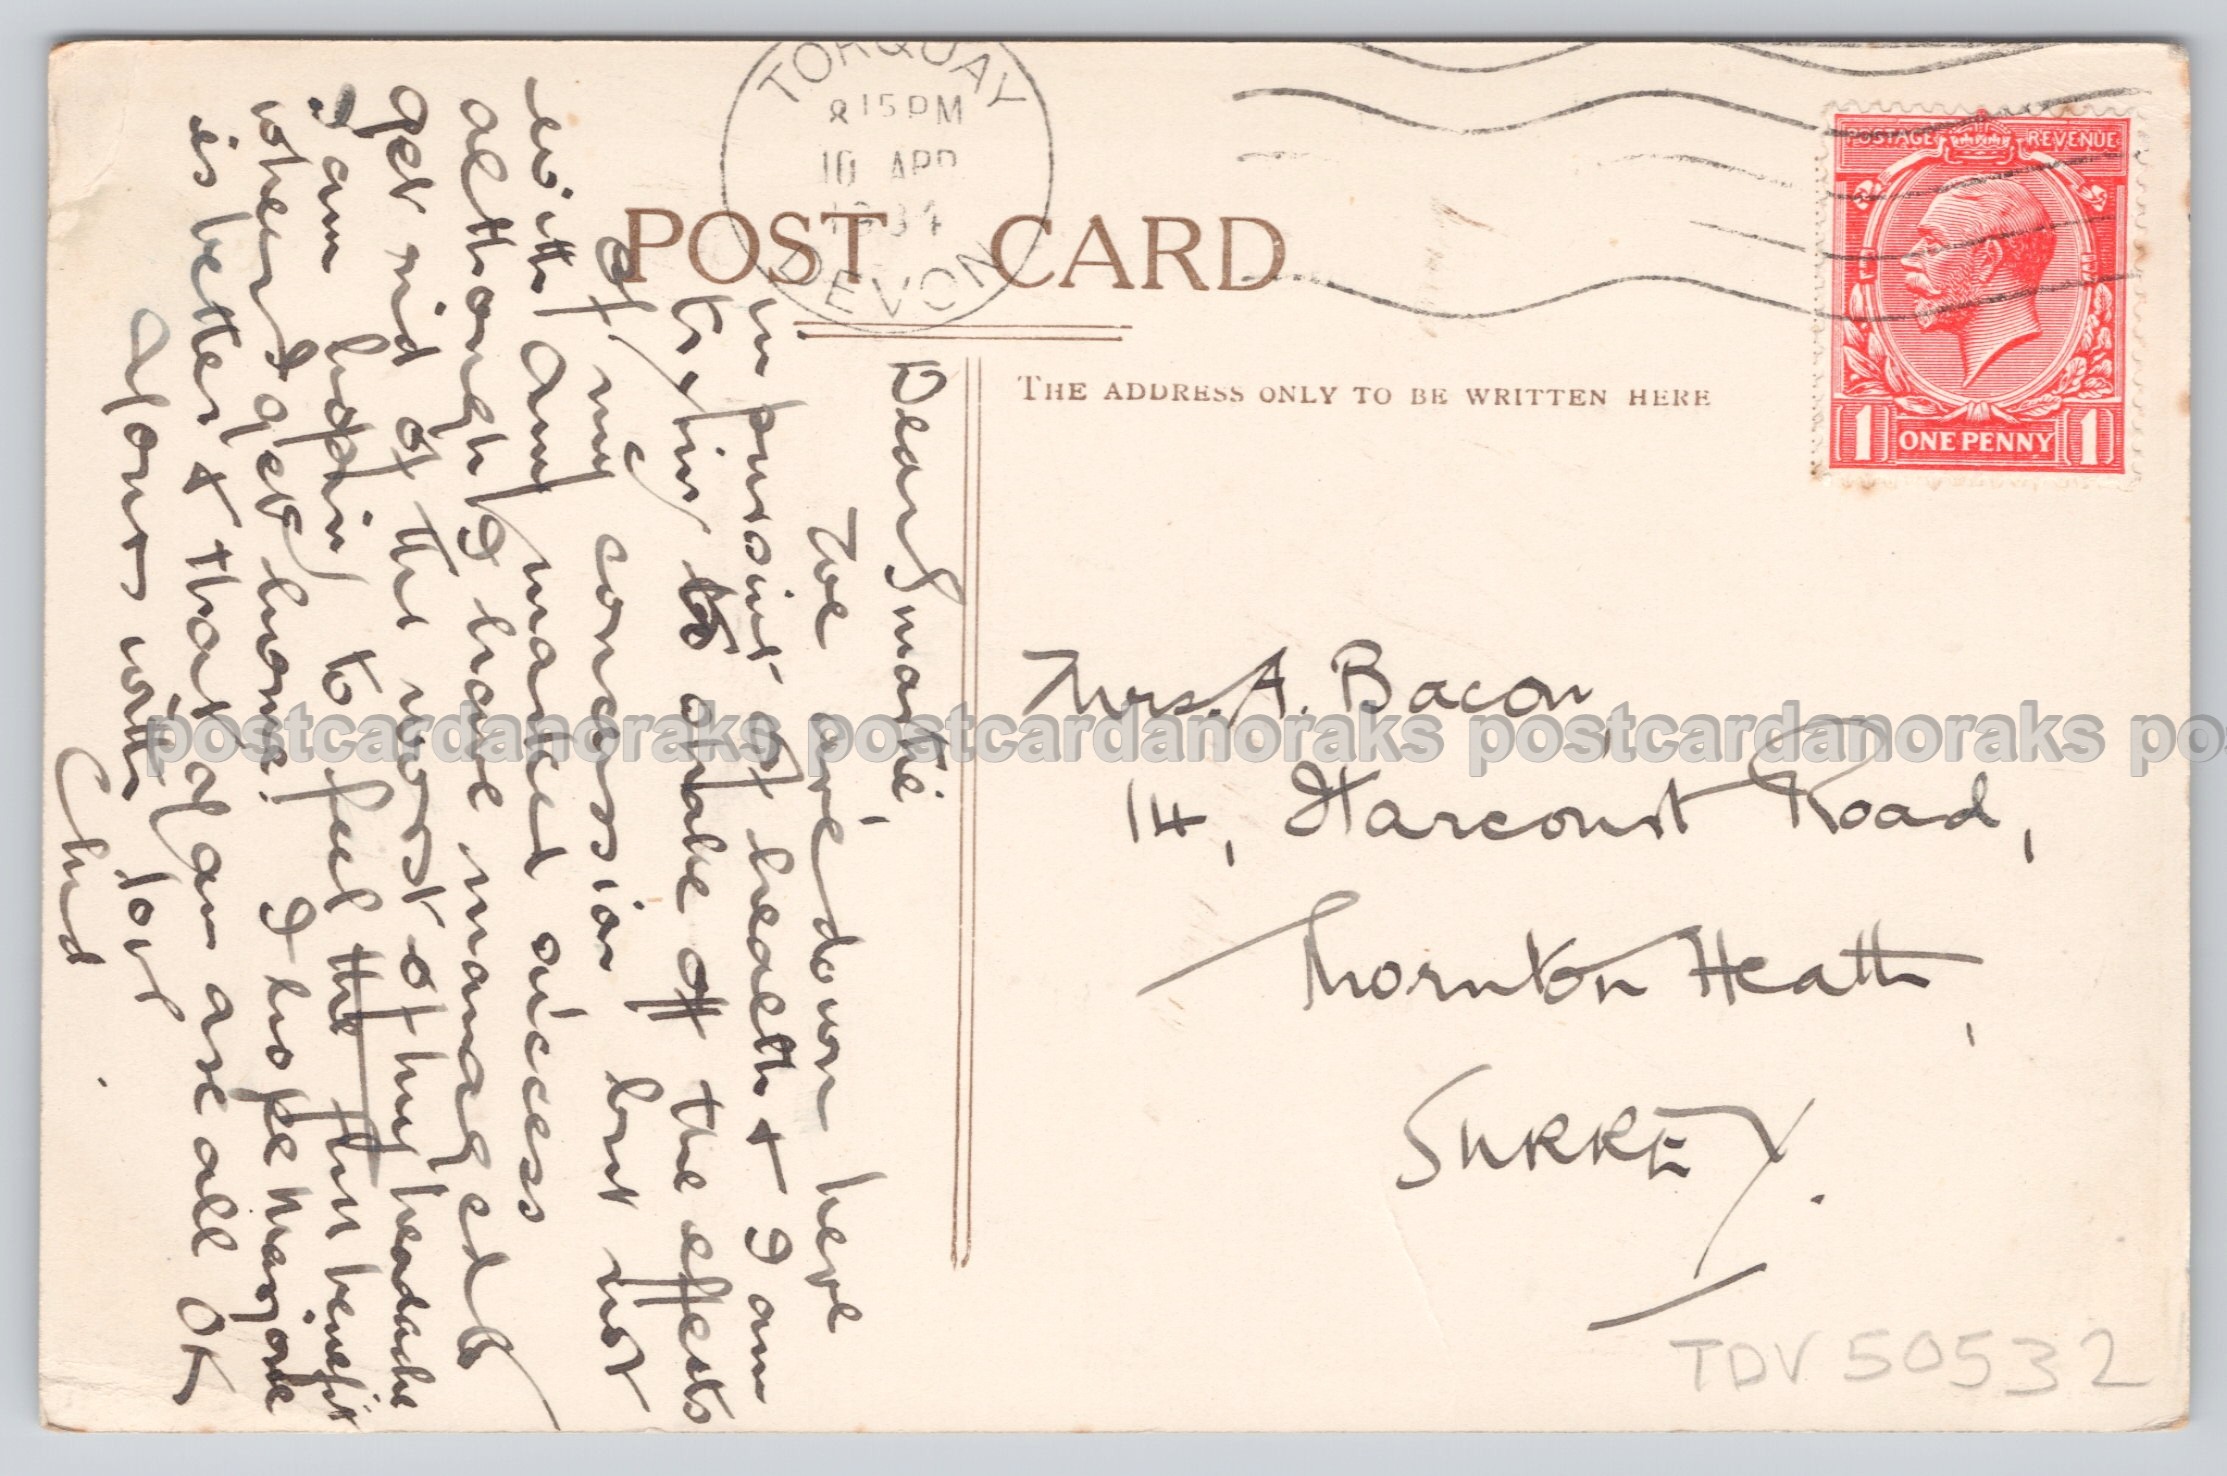 TORQUAY
8 15 PM
10 APR
1934
DEVON
POSTAGE REVENUE
1 ONE PENNY 1
POST CARD
THE ADDRESS ONLY TO BE WRITTEN HERE
Dear Smartie,
We are down here
in pursuit of health & I am
trying to shake off the effects
of my concussion but not
with any marked success
although I have managed to
get rid of the worst of my headache
I am hoping to feel the full benefit
when I get home. I hope Marjorie
is better & that Gran are all OK
Yours with love
Chid.
Mrs. A. Bacon,
14, Harcourt Road,
Thornton Heath,
SURREY.
TDV 50532
postcardanoraks postcardanoraks postcardanoraks po